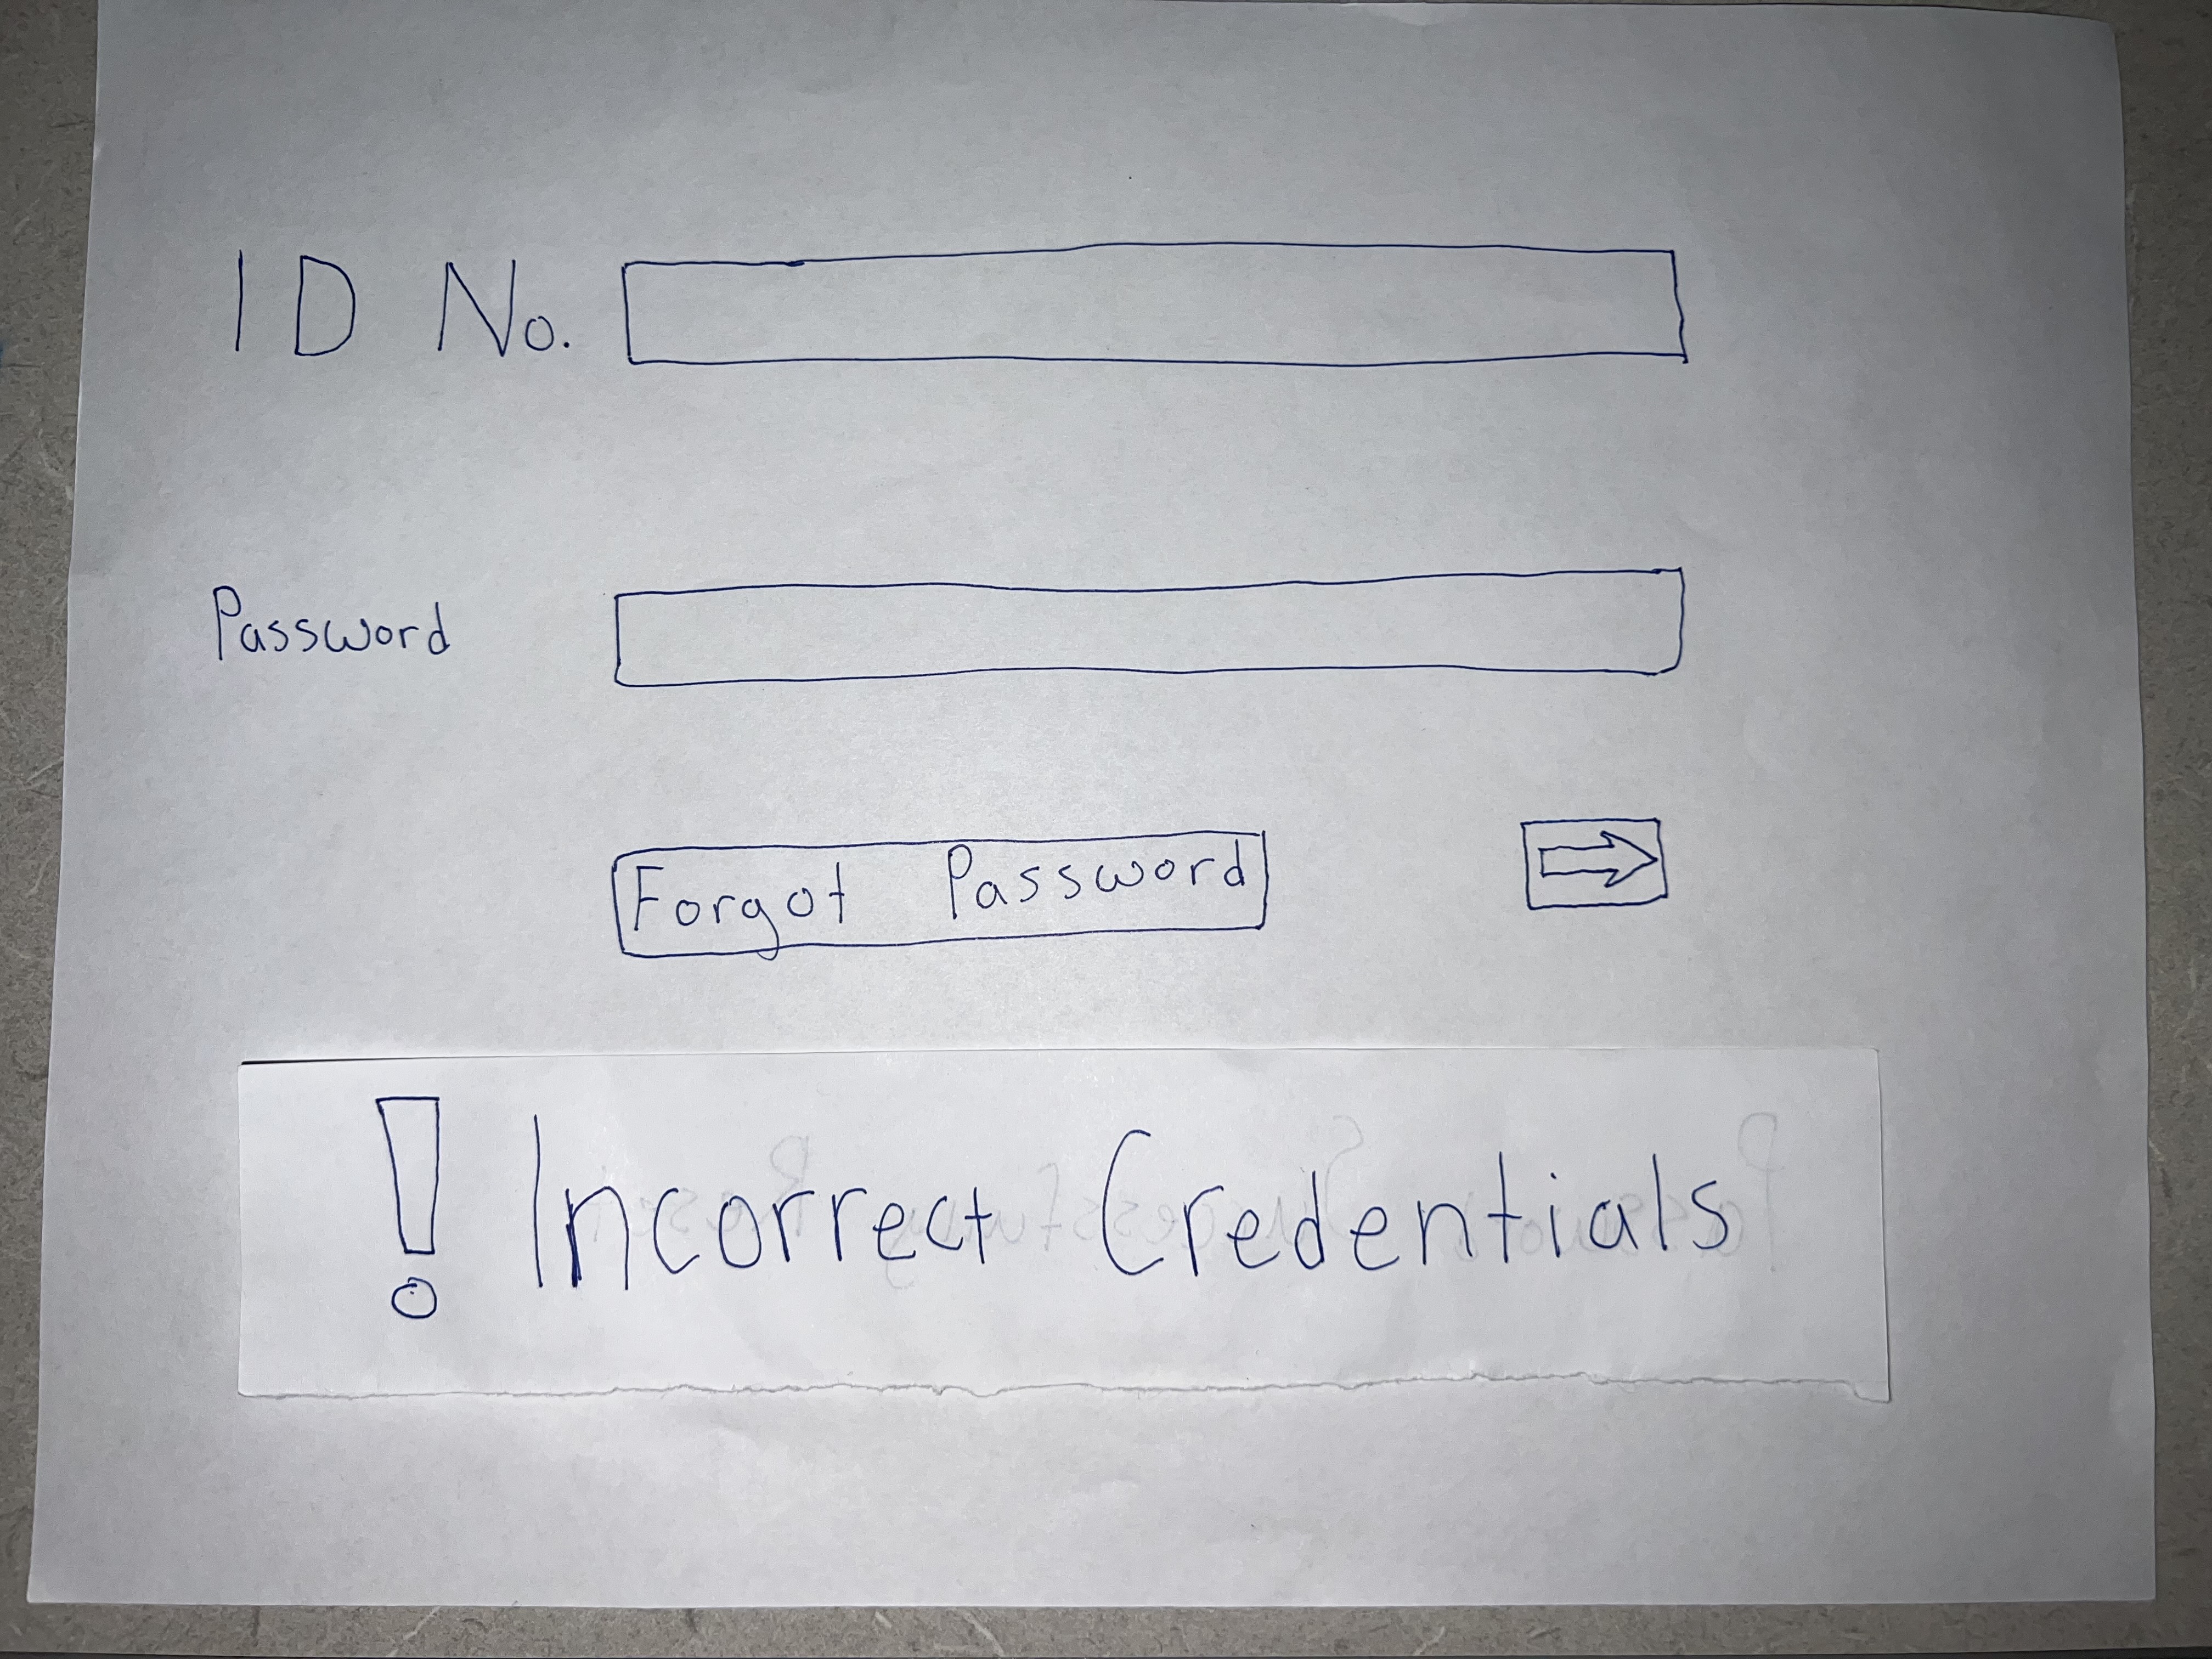 ID No.
Password
Forgot Password
! Incorrect Credentials